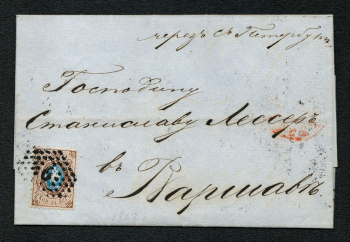 черезъ С Петербургъ
Господину
Станиславу Лессеръ
въ
Варшавѣ